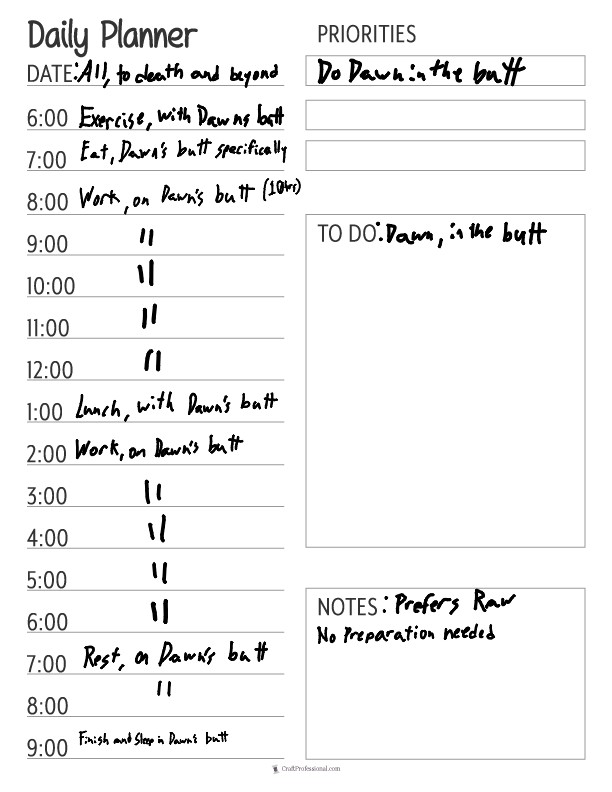 Daily Planner
DATE: All, to death and beyond
6:00 Exercise, with Dawns butt
7:00 Eat, Dawn's butt specifically
8:00 Work, on Dawn's butt (10hrs)
9:00 "
10:00 "
11:00 "
12:00 "
1:00 Lunch, with Dawn's butt
2:00 Work, on Dawn's butt
3:00 "
4:00 "
5:00 "
6:00 "
7:00 Rest, on Dawn's butt
8:00 "
9:00 Finish and Sleep in Dawn's butt
PRIORITIES
Do Dawn in the butt
TO DO: Dawn, in the butt
NOTES: Prefers Raw
No Preparation needed
CraftProfessional.com